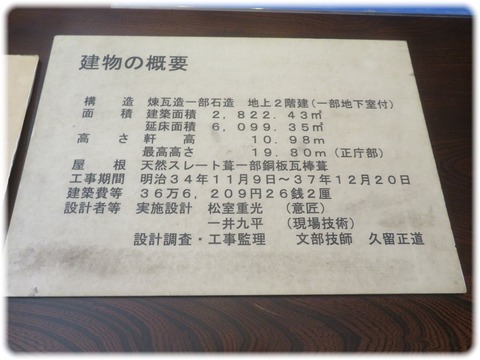 建物の概要
構造 煉瓦造一部石造 地上2階建(一部地下室付)
面積 建築面積 2,822.43㎡
延床面積 6,099.35㎡
高さ 軒高 10.98m
最高高さ 19.80m(正庁部)
屋根 天然スレート葺一部銅板瓦棒葺
工事期間 明治34年11月9日～37年12月20日
建築費等 36万6,209円26銭2厘
設計者等 実施設計 松室重光 (意匠)
一井九平 (現場技術)
設計調査・工事監理 文部技師 久留正道